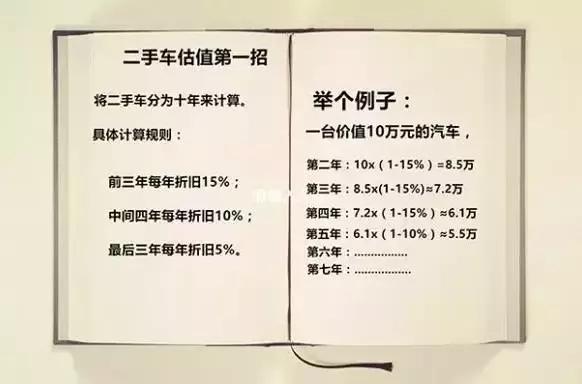 二手车估值第一招
将二手车分为十年来计算。
具体计算规则：
前三年每年折旧15%；
中间四年每年折旧10%；
最后三年每年折旧5%。
举个例子：
一台价值10万元的汽车，
第二年：10x（1-15%）=8.5万
第三年：8.5x(1-15%)≈7.2万
第四年：7.2x（1-15%）≈6.1万
第五年：6.1x（1-10%）≈5.5万
第六年：...............
第七年：................